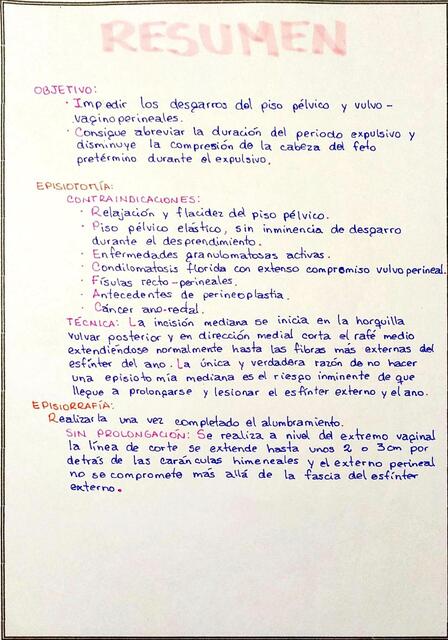 RESUMEN
OBJETIVO:
· Impedir los desgarros del piso pélvico y vulvo-
vaginoperineales.
· Consigue abreviar la duración del periodo expulsivo y
disminuye la compresión de la cabeza del feto
pretérmino durante el expulsivo.
EPISIOTOMÍA:
CONTRAINDICACIONES:
· Relajación y flacidez del piso pélvico.
· Piso pélvico elástico, sin inminencia de desgarro
durante el desprendimiento.
· Enfermedades granulomatosas activas.
· Condilomatosis florida con extenso compromiso vulvoperineal.
· Físulas recto-perineales.
· Antecedentes de perineoplastia.
· Cáncer ano-rectal.
TÉCNICA: La incisión mediana se inicia en la horquilla
vulvar posterior y en dirección medial corta el rafé medio
extendiéndose normalmente hasta las fibras más externas del
esfínter del ano. La única y verdadera razón de no hacer
una episiotomía mediana es el riesgo inminente de que
llegue a prolongarse y lesionar el esfínter externo y el ano.
EPISIORRAFÍA:
Realizarla una vez completado el alumbramiento.
SIN PROLONGACIÓN: Se realiza a nivel del extremo vaginal
la línea de corte se extiende hasta unos 2 o 3cm por
detrás de las carúnculas himeneales y el externo perineal
no se compromete más allá de la fascia del esfínter
externo.